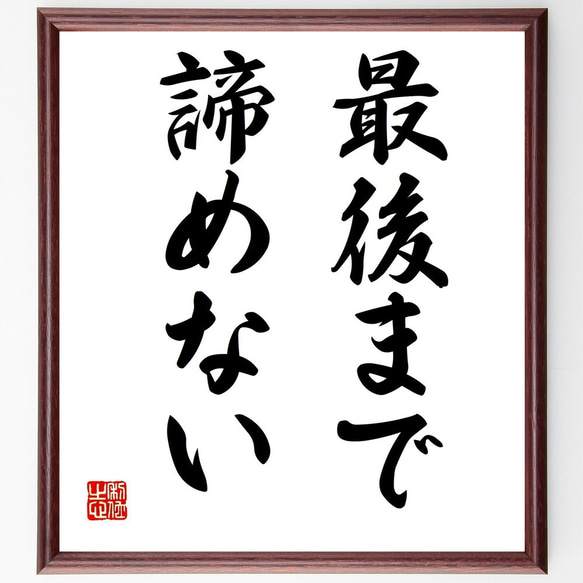 最後まで
諦めない